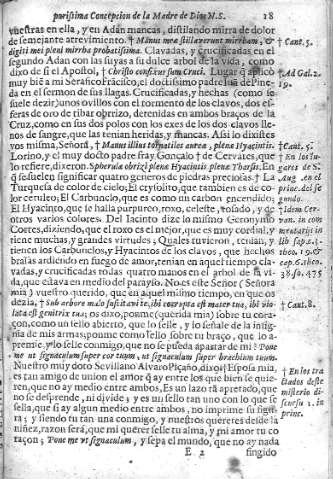 purissima Concepcion de la Madre de Dios N.S. 18
vuestras en ella, y en Adan mancas, distilando mirra de dolor
de semejante atrevimiento. † Manus meæ stillaverunt mirrham, &
digiti mei pleni mirrha probatissima. Clavadas, y crucificadas en el
segundo Adan con las suyas a su dulce arbol de la vida, como
dixo de si el Apostol, † Christo confixus sum Cruci. Lugar q̃ aplicò
muy biẽ a mi Serafico Francisco, el doctissimo padre Luis de Pine-
da en el sermon de sus llagas. Crucificadas, y hechas (como se
suele dezir) unos ovillos con el tormento de los clavos, dos esfe-
ras de oro de tibar obrizo, derenidas en ambos braços de la
Cruz, como en sus dos polos con los exes de los clavos lle-
nos de sangre, que las tenian heridas, y mancas. Assi lo dixistes
vos misma, Señora, † Manus illius tornatiles aureæ, plenæ Hyacintis.
Lorino, y el muy docto padre fray Gonçalo de Cervantes, que
lo refiere, dixeron. Sphærulæ obrizi plenæ Hyacintis plenæ Tharsis. En
q̃ se suelẽ significar quatro generos de piedras preciosas. † La
Turquesa de color de cielo; El crysolito, que tambien es de co-
lor ceruleo; El Carbunclo, que es como un carbon encendido;
El Hyacinto, que se halla purpureo, roxo, celeste, rosado, y de
otros varios colores. Del Jacinto dize lo mismo Geronymo
Cortes, diziendo, que el roxo es el mejor, que es muy cordial, y
tiene muchas, y grandes virtudes; Quales tuvieron, tenian, y
tienen los Carbunclos, y Hyacintos de los clavos, que hechos
brasas ardiendo en fuego de amor, tenian en aquel tiempo cla-
vadas, y crucificadas todas quatro manos en el arbol de la vi-
da, que estava en medio del parayso. No es este Señor (Señora
mia) vuestro querido, que en aquel mismo tiempo, en que os
dezia, † Sub arbore malo suscitavi te, ibi corrupta est mater tua, ibi vio-
lata est genitrix tua; os dixo, poneme (querida mia) sobre tu cora-
çon, como un sello abierto, que lo selle, y lo señale de la insig-
nia de mis armas, poneme como sello sobre tu braço, que lo a-
premie, y lo selle conmigo, que no se pueda apartar de mi? Po-
ne me ut signaculum super cor tuum, ut signaculum super brachium tuum.
Nuestro muy doto Sevillano Alvaro Piçaño, dixo: Esposa mia,
es tan amigo de union el amor q̃ ay entre los que bien se quie-
ren, que no ay medio entre ambos, Es un lazo tã apretado, que
no se desprende, ni divide; y es un sello tan uno con lo que se
sella, que si ay algun medio entre ambos, no imprime su figu-
ra; y siendo tu tan una conmigo, y nuestros quereres desde la
niñez, razon serà, que mi querer selle tu alma, y mi amor tu co
raçon; Pone me ut signaculum, y sepa el mundo, que no ay nada
E 2 fingido
† Cant. 5.
† Ad Gal. 2.
19.
† Cant. 5.
† Cant. 8.